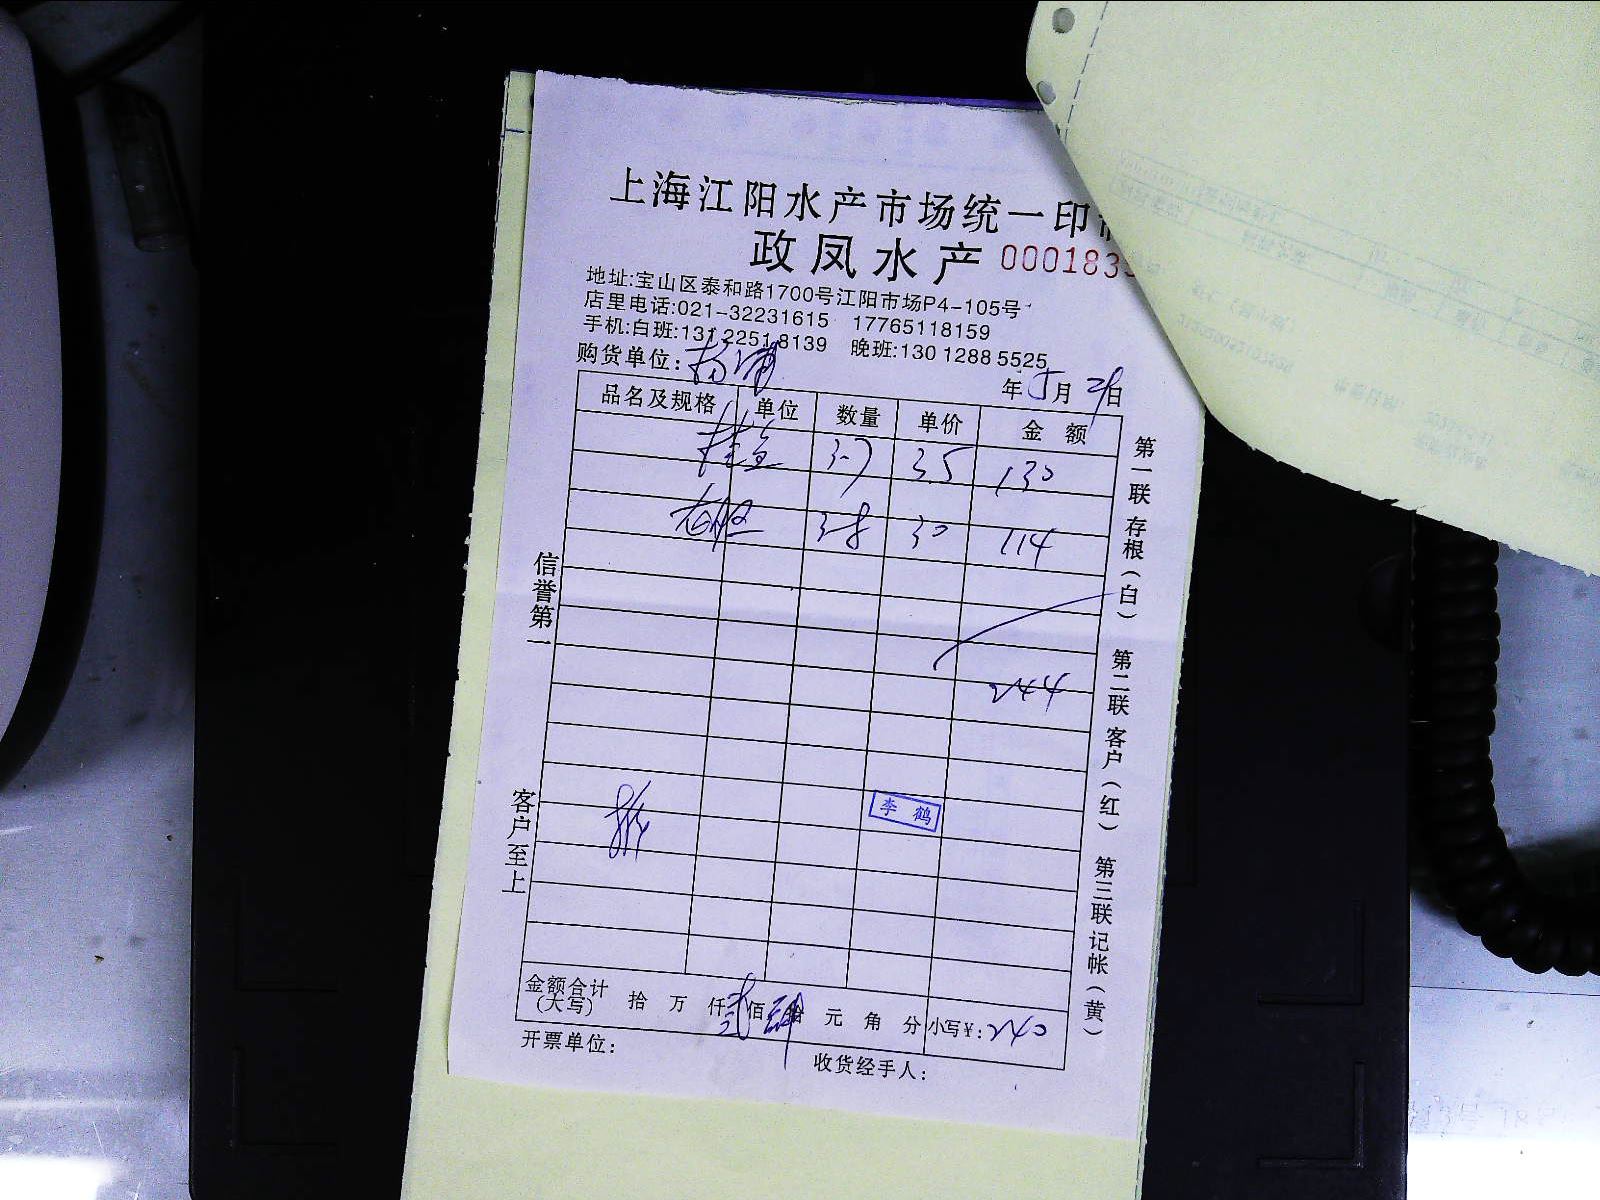 上海江阳水产市场统一印
政凤水产 000183
地址:宝山区泰和路1700号江阳市场P4-105号
店里电话:021-32231615 17765118159
手机:白班:131 2251 8139 晚班:130 1288 5525
购货单位: 杨浦
年 5 月 29 日
品名及规格 单位 数量 单价 金额
桂鱼 3.7 35 130
3.8 30 114
244
李鹤
金额合计(大写) 拾 万 仟 贰 佰 肆 拾 元 角 分 小写¥: 240
开票单位: 收货经手人:
信誉第一
客户至上
第一联存根(白) 第二联客户(红) 第三联记帐(黄)